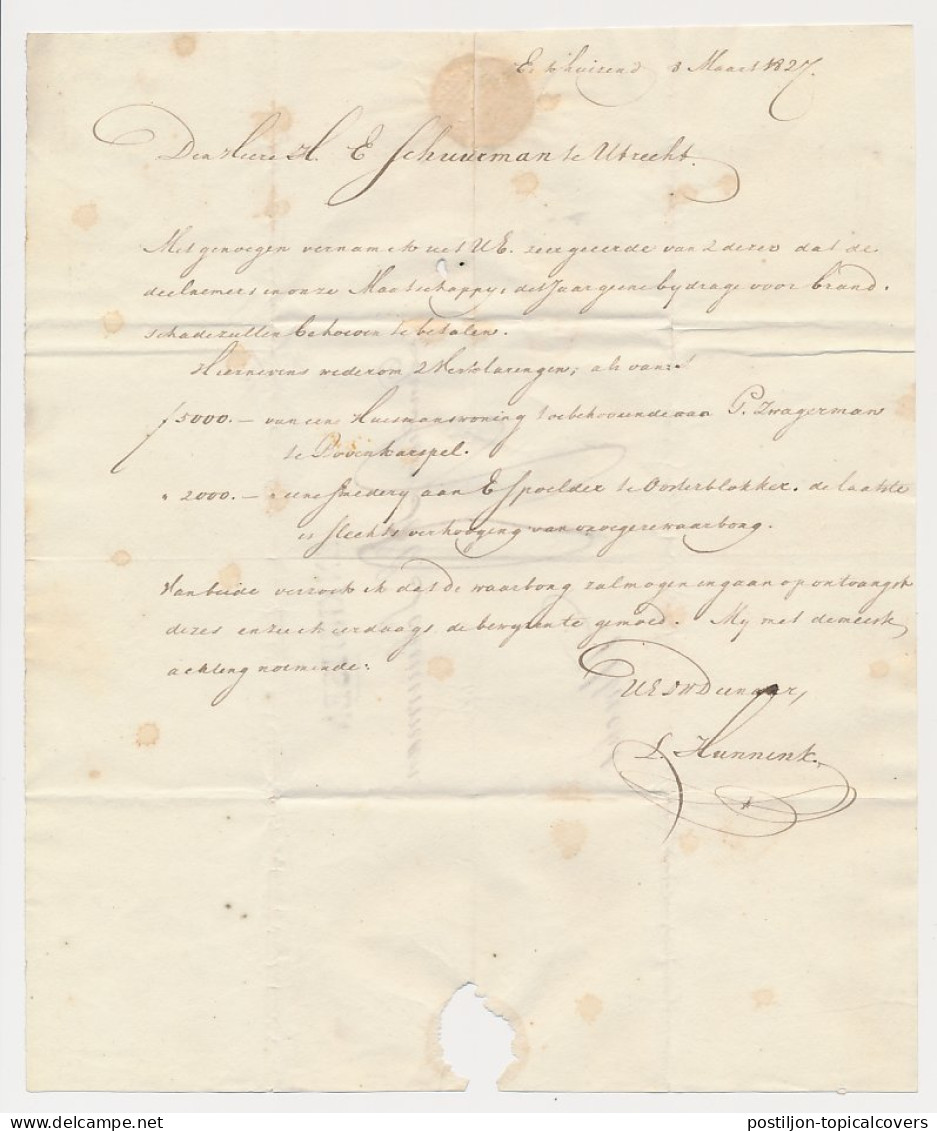 Enkhuizend 8 Maart 1827.
Den Heere H. E Schuurman te Utrecht.
Met genoegen vernam ik uit UE. zeer geeerde van 2 dezer dat de
deelnemers in onze Maatschappy, dit Jaar geene bydrage voor brand
schade zullen behoeven te betalen.
Hiernevens wederom 2 Verklaringen, als van:
f 5000.— van eene Huismanswoning toebehoorende aan P. Zwagerman
te Bovenkarspel.
" 2000.— " eene Smedery aan E Spoelder te Oosterblokker. de laatste
is slechts verhooging van vroegere waarborg.
Van beide verzoek ik dat de waarborg zal mogen ingaan op ontvangst
dezes en zie ik eerdaags de bewyzen te gemoed. My met de meeste
achting noemende:
UE DW Dienaar,
L. Hunnink.
postiljon-topicalcovers